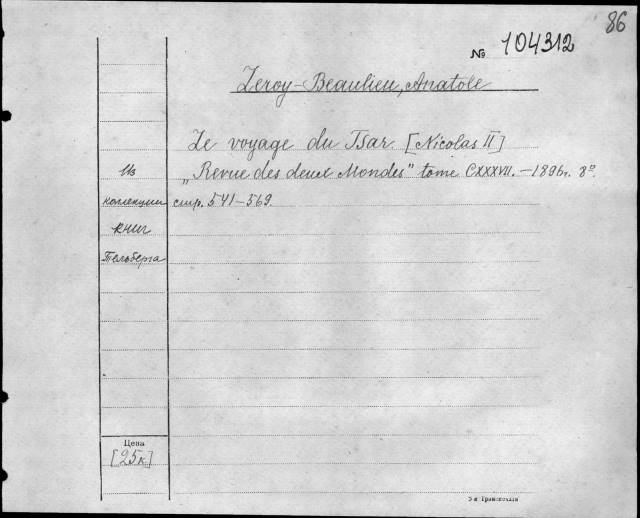 86
№ 104312
Leroy-Beaulieu, Anatole
Le voyage du Tsar. [Nicolas II]
„Revue des deux Mondes" tome CXXXVII. — 1896г. 8°.
стр. 541-569.
Из
коллекции
книг
Тельберга
Цена
[25к]